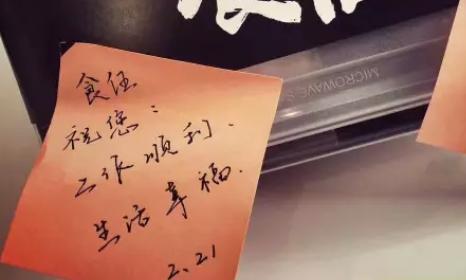 食伍
祝您：
工作顺利、
生活幸福.
2.21
MICROWAVE